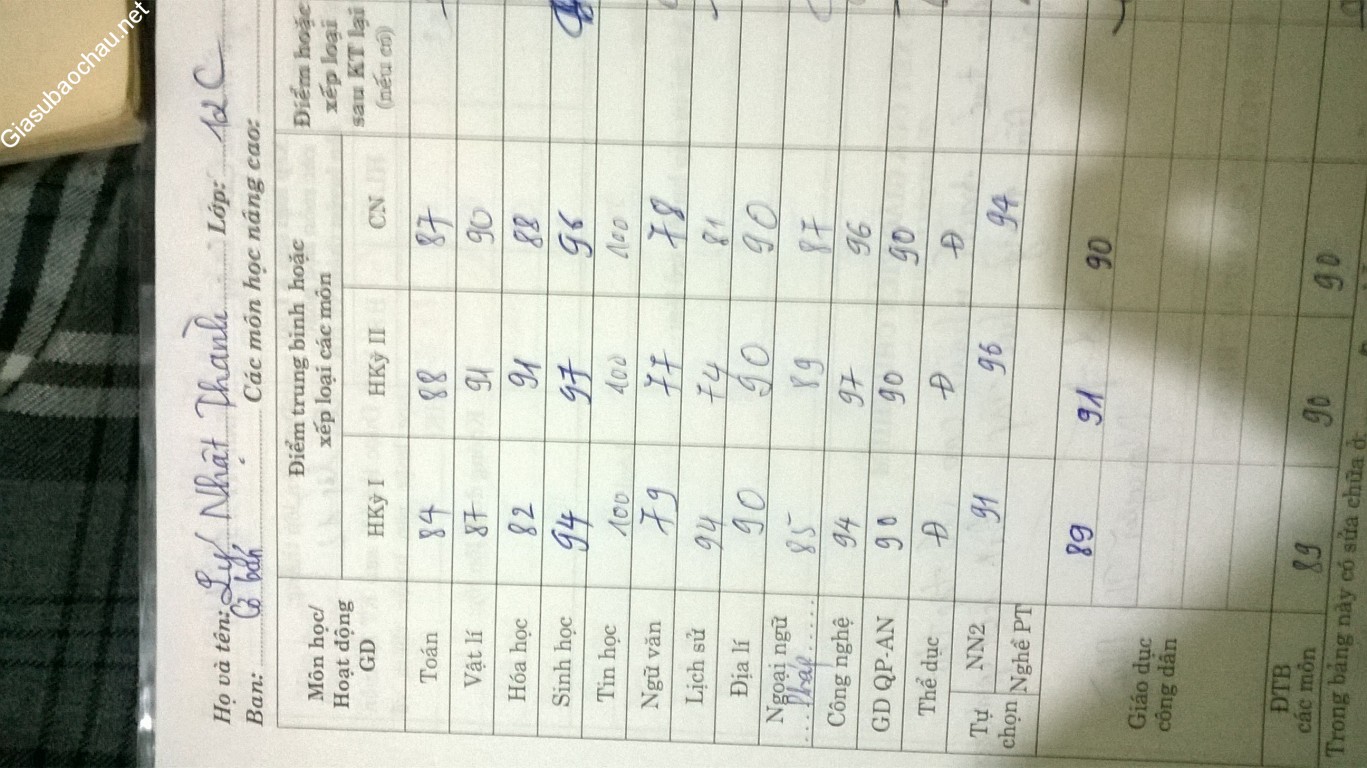 Giasubaochau.net
Họ và tên: Lý Nhật Thành Lớp: 12C
Ban: Cơ bản Các môn học nâng cao:
Môn học/ Hoạt động GD Điểm trung bình hoặc xếp loại các môn Điểm hoặc xếp loại sau KT lại (nếu có)
HKỳ I HKỳ II CN
Toán 84 88 87
Vật lí 87 91 90
Hóa học 82 91 88
Sinh học 94 97 96
Tin học 100 100 100
Ngữ văn 79 77 78
Lịch sử 94 74 81
Địa lí 90 90 90
Ngoại ngữ
Pháp 85 89 87
Công nghệ 94 97 96
GD QP-AN 90 90 90
Thể dục Đ Đ Đ
Tự chọn NN2 91 96 94
Nghề PT
Giáo dục công dân 89 91 90
ĐTB các môn 89 90 90
Trong bảng này có sửa chữa ở: